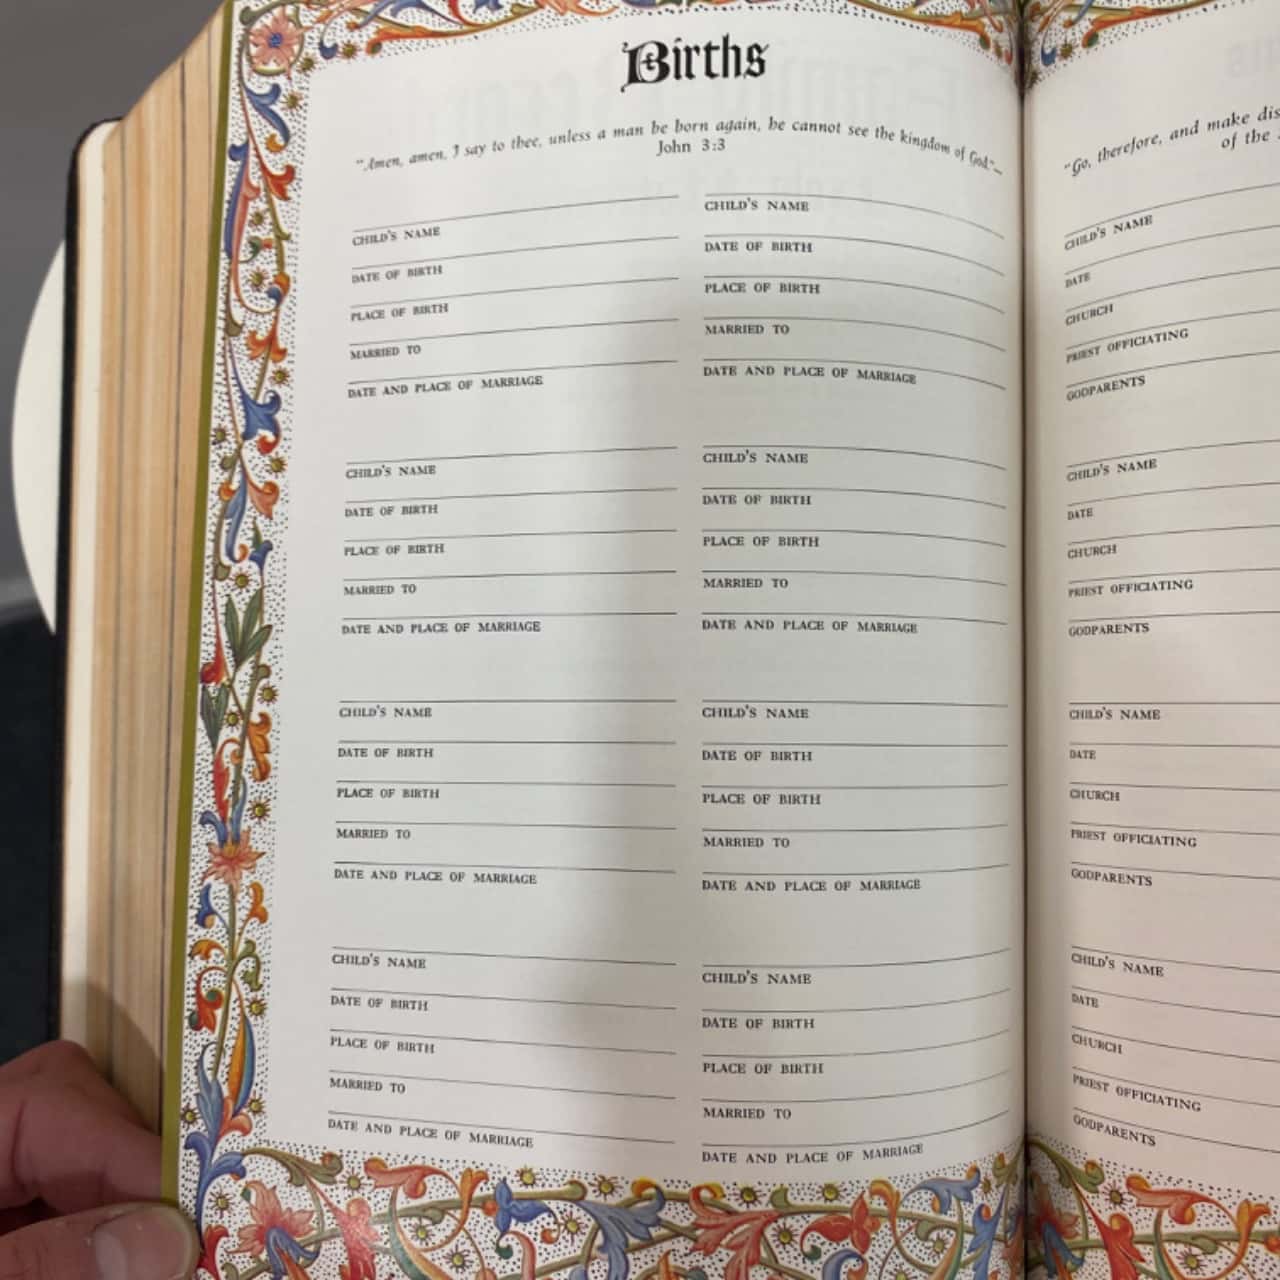 Births
"Amen, amen, I say to thee, unless a man be born again, he cannot see the kingdom of God."—
John 3:3
CHILD'S NAME
DATE OF BIRTH
PLACE OF BIRTH
MARRIED TO
DATE AND PLACE OF MARRIAGE
CHILD'S NAME
DATE OF BIRTH
PLACE OF BIRTH
MARRIED TO
DATE AND PLACE OF MARRIAGE
CHILD'S NAME
DATE OF BIRTH
PLACE OF BIRTH
MARRIED TO
DATE AND PLACE OF MARRIAGE
CHILD'S NAME
DATE OF BIRTH
PLACE OF BIRTH
MARRIED TO
DATE AND PLACE OF MARRIAGE
CHILD'S NAME
DATE OF BIRTH
PLACE OF BIRTH
MARRIED TO
DATE AND PLACE OF MARRIAGE
CHILD'S NAME
DATE OF BIRTH
PLACE OF BIRTH
MARRIED TO
DATE AND PLACE OF MARRIAGE
CHILD'S NAME
DATE OF BIRTH
PLACE OF BIRTH
MARRIED TO
DATE AND PLACE OF MARRIAGE
CHILD'S NAME
DATE OF BIRTH
PLACE OF BIRTH
MARRIED TO
DATE AND PLACE OF MARRIAGE
"Go, therefore, and make dis
of the
CHILD'S NAME
DATE
CHURCH
PRIEST OFFICIATING
GODPARENTS
CHILD'S NAME
DATE
CHURCH
PRIEST OFFICIATING
GODPARENTS
CHILD'S NAME
DATE
CHURCH
PRIEST OFFICIATING
GODPARENTS
CHILD'S NAME
DATE
CHURCH
PRIEST OFFICIATING
GODPARENTS